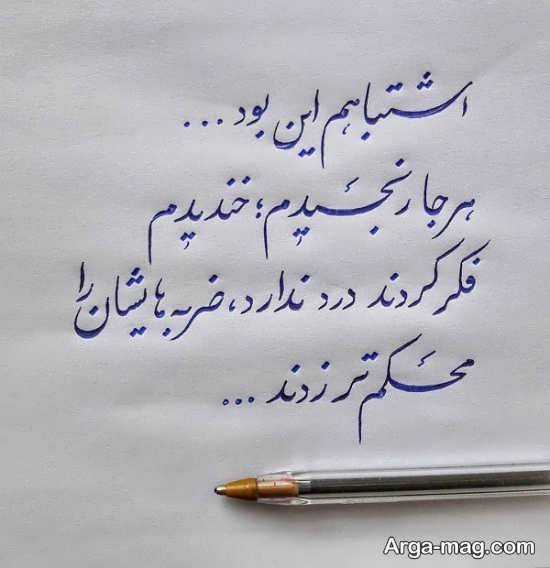 اشتباهم این بود ...
هر جا رنجیدم؛ خندیدم
فکر کردند درد ندارد، ضربه هایشان را
محکم تر زدند ...
Arga-mag.com